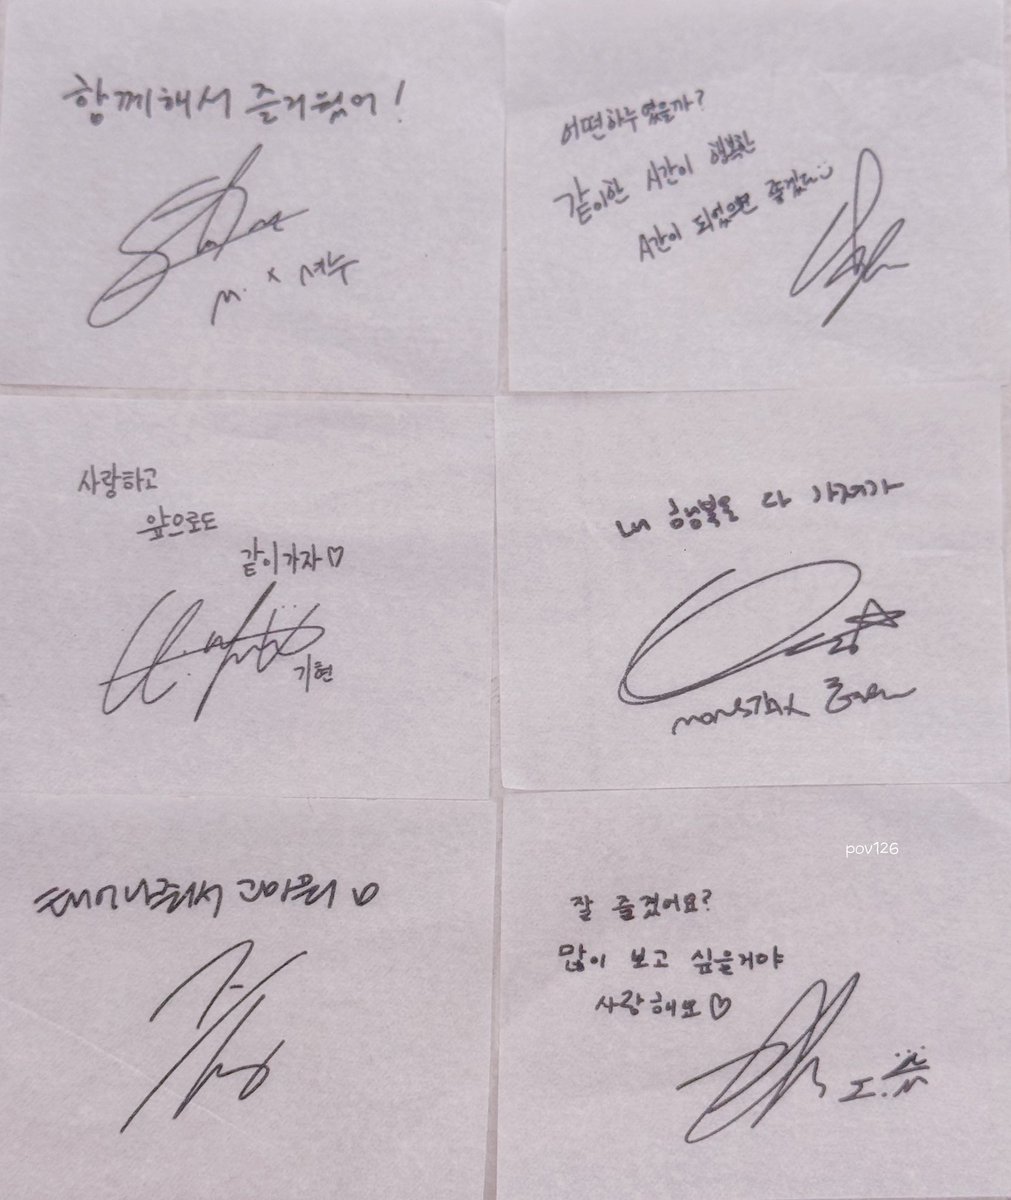 함께해서 즐거웠어!
M. x 셔누
어떤하루였을까?
같이한 시간이 행복한
시간이 되었으면 좋겠다
사랑하고
앞으로도
같이가자♡
기현
내 행복을 다 가져가
MONSTA X 형원
태어나줘서 고마워
pov126
잘 즐겼어요?
많이 보고 싶을거야
사랑해요♡
I.M